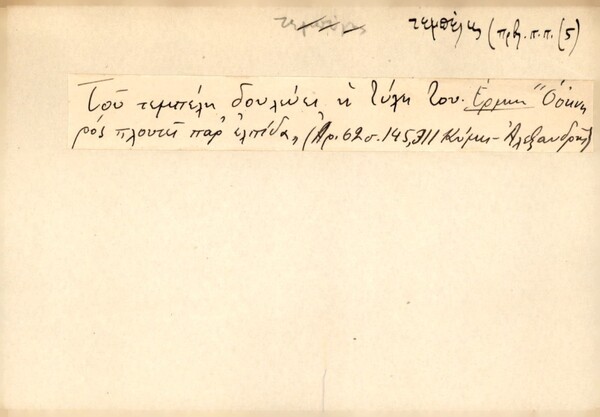 τεμπέλης (πρβ. π.π. (5)
Τοῦ τεμπέλη δουλεύει ἡ τύχη του. Ἑρμην "Ὁ ὀκνη
ρός πλουτεῖ παρ' ἐλπίδα, (Ἀρ. 62 σ. 145, 311 Κύμης - Ἀλεξανδρῆς)